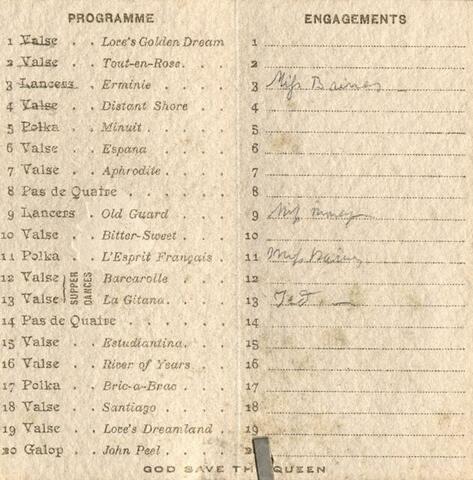 PROGRAMME
1 Valse . . Love's Golden Dream
2 Valse . . Tout-en-Rose. . .
3 Lancers . Erminie . . . .
4 Valse . . Distant Shore . .
5 Polka . . Minuit . . . . .
6 Valse . . Espana . . . .
7 Valse . . Aphrodite . . . .
8 Pas de Quatre . . . . . .
9 Lancers . Old Guard . . . .
10 Valse . . Bitter-Sweet . . .
11 Polka . . L'Esprit Français . .
12 Valse Barcarolle . . .
SUPPER DANCES
13 Valse La Gitana . . . .
14 Pas de Quatre . . . . . .
15 Valse . . Estudiantina. . . .
16 Valse . . River of Years . .
17 Polka . . Bric-a-Brac . . .
18 Valse . . Santiago . . . .
19 Valse . . Love's Dreamland . .
20 Galop . . John Peel . . . .
ENGAGEMENTS
1
2
3 Miss Baines
4
5
6
7
8
9
10
11 Miss Baines
12
13 Ted
14
15
16
17
18
19
GOD SAVE THE QUEEN